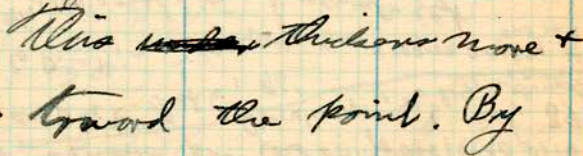 This thickens more +
toward the point. By